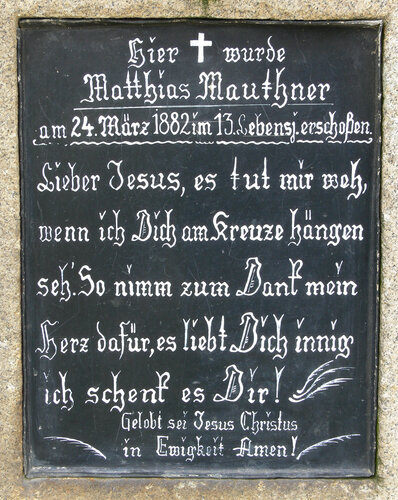 Hier † wurde
Matthias Mauthner
am 24. März 1882 im 13. Lebensj. erschoßen.
Lieber Jesus, es tut mir weh,
wenn ich Dich am Kreuze hängen
seh'. So nimm zum Dank mein
Herz dafür, es liebt Dich innig
ich schenk es Dir!
Gelobt sei Jesus Christus
in Ewigkeit Amen!